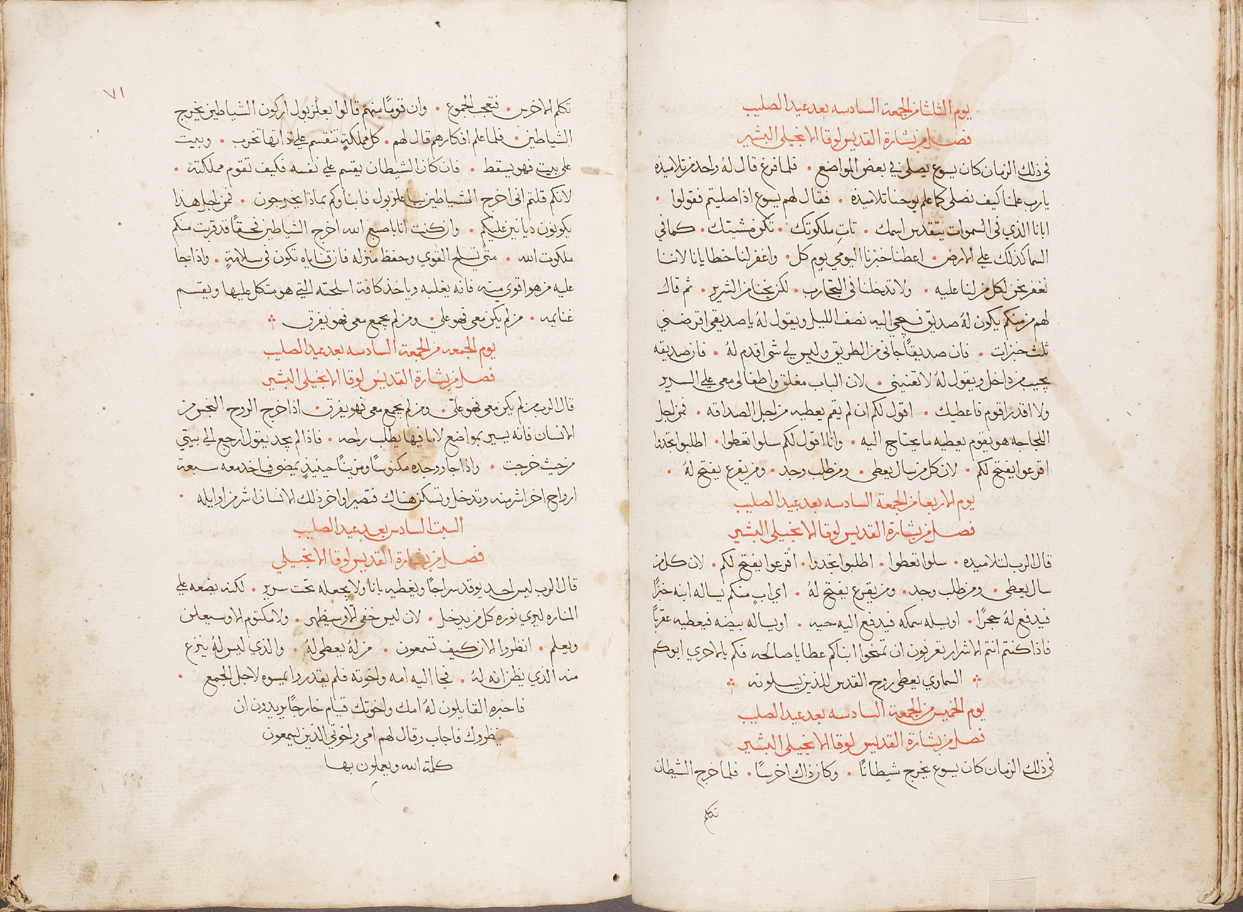 يوم الثلثا من الجمعة السادسه بعد عيد الصليب
فصل من بشارة القديس لوقا الانجيلي البشير
في ذلك الزمان كان يسوع يصلي في بعض المواضع • فلما فرغ قال له واحد من تلاميذه
يا رب علمنا كيف نصلي كما علم يوحنا تلاميذه • فقال لهم يسوع اذا صليتم فقولوا •
ابانا الذي في السموات يتقدس اسمك • تاتِ ملكوتك • تكن مشيتك • كما في
السما كذلك على الارض • اعطنا خبزنا اليومي يوم كل • واغفر لنا خطايانا لاننا
نغفر نحن لكل من لنا عليه • ولا تدخلنا في التجارب • لكن نجنا من الشرير • ثم قال
لهم من منكم يكون لهُ صديق فيجي اليه نصف الليل ويقول لهُ يا صديقي اقرضني
ثلث خبزات • فان صديقاً جاني من الطريق وليس لي شي اقدم لهُ • فان صديقه
يجيب من داخل ويقول لهُ لا تعنيني • لان الباب مغلق واطفالي معي على السرير
ولا اقدر اقوم فاعطيك • اقول لكم ان لم يقم يعطيه من اجل الصداقه • فمن اجل
اللجاجه هو يقوم يعطيه ما يحتاج اليه • وانا اقول لكم سلوا تعطوا • اطلبوا تجدوا
اقرعوا يفتح لكم • لان كل من سال يعطى • ومن طلب وجد • ومن يقرع يفتح لهُ •
يوم الاربعا من الجمعة السادسه بعد عيد الصليب
فصل من بشارة القديس لوقا الانجيلي البشير
قال الرب لتلاميذه • سلوا تعطوا • اطلبوا تجدوا • أقرعوا يفتح لكم • لان كل من
سال يعطى • ومن طلب وجد • ومن يقرع يفتح لهُ • اي ابٍ منكم يساله ابنه خبزاً
فيدفع لهُ حجراً • او يسله سمكه فيدفع اليه حيه • او يساله بيضه فيعطيه عقرباً
فاذا كنتم انتم الاشرار تعرفون ان تمنحوا ابناكم عطايا صالحه • فكم بالاحرى ابوكم
السماوي يعطي روح القدس للذين يسلونه
يوم الخميس من الجمعة السادسه بعد عيد الصليب
فصل من بشارة القديس لوقا الانجيلي البشير
في ذلك الزمان كان يسوع يخرج شيطاناً • وكان ذاك اخرساً • فلما خرج الشيطان
تكلم
٧١
تكلم الاخرس • فتعجب الجموع • وان قوماً منهم قالوا بعلزبول اركون الشياطين يخرج
الشياطين • فلما علم افكارهم قال لهم • كل مملكةٍ تنقسم على ذاتها تخرب • وبيت
على بيت فهو يسقط • فان كان الشيطان يقسم على نفسه فكيف تقوم مملكته •
لانكم قلتم اني اخرج الشياطين ببعلزبول فابناوكم بماذا يخرجون • فمن اجل هذا
يكونون ديانين عليكم • وان كنت انا باصبع الله اخرج الشياطين فحقاً قد قربت منكم
ملكوت الله • متى تسلح القوي وحفظ منزله فان قناياه تكون في سلامةٍ • واذا جا
عليه من هو اقوى منه فانه يغلبه وياخذ كافة اسلحته التي هو متكل عليها ويقسم
غنايمه • من لم يكن معي فهو علي • ومن لم يجمع معي فهو يفرق
يوم الجمعه من الجمعة السادسه بعد عيد الصليب
فصل من بشارة القديس لوقا الانجيلي البشير
قال الرب من لم يكن معي فهو علي • ومن لم يجمع معي فهو يفرق • اذا خرج الروح النجس من
الانسان فانه يسير بمواضع لا ما فيها يطلب راحه • فاذا لم يجد يقول ارجع الى بيتي
من حيث خرجت • واذا جا وجده مكنوساً ومزيناً حينيذٍ يمضي فياخذ معه سبعة
ارواح اخر اشر منه وتدخل وتسكن هناك فتصير اواخر ذلك الانسان اشر من اوايله •
السبت السادس بعد عيد الصليب
فصل من بشارة القديس لوقا الانجيلي
قال الرب ليس احد يوقد سراجاً ويغطيه بانا ولا يجعله تحت سرير • لكنه يضعه على
المناره ليرى نوره كل من يدخل • لان ليس خفي الا وسيظهر • ولا مكتوم الا وسيعلن
ويعلم • انظروا الان كيف تسمعون • من لهُ يعطى لهُ • والذي ليس لهُ ينزع
منه الذي يظن انه لهُ • فجا اليه امه واخوته فلم يقدروا لاجل الجمع •
فاخبره القايلون لهُ امك واخوتك قيام خارجاً يريدون ان
ينظروك فاجاب وقال لهم امي واخوتي الذين يسمعون
كلمة الله ويعملون بها